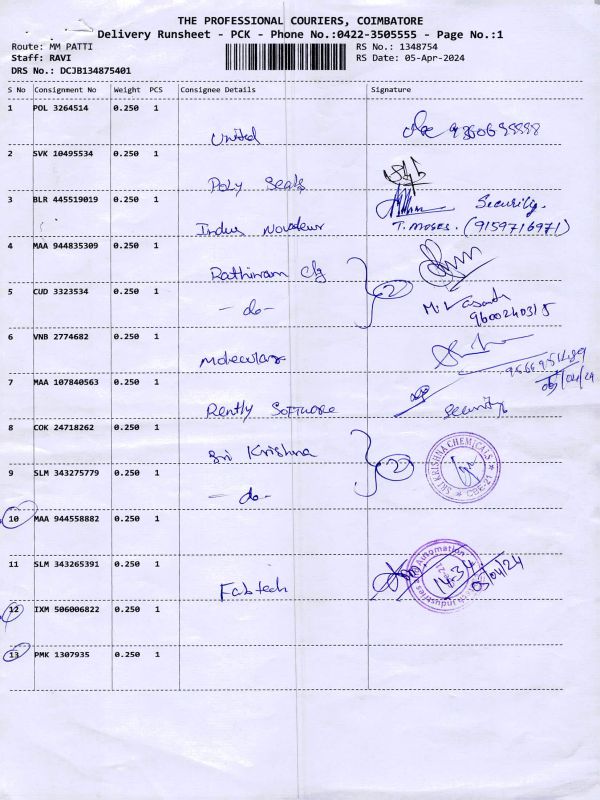 THE PROFESSIONAL COURIERS, COIMBATORE
Delivery Runsheet - PCK - Phone No.:0422-3505555 - Page No.:1
Route: MM PATTI RS No.: 1348754
Staff: RAVI RS Date: 05-Apr-2024
DRS No.: DCJB134875401
S No Consignment No Weight PCS Consignee Details Signature
1 POL 3264514 0.250 1
United
2 SVK 10495534 0.250 1
Poly Seals
3 BLR 445519019 0.250 1 Security.
Indus Novateur T. MOSES. (9159716971)
4 MAA 944835309 0.250 1
Rathinam 2
5 CUD 3323534 0.250 1
- do - 9600240315
6 VNB 2774682 0.250 1
Molecular
7 MAA 107840563 0.250 1 05/04/24
Rently Software Security
8 COK 24718262 0.250 1
Sri Krishna 2
SRI KRISHNA CHEMICALS
CBE-21
9 SLM 343275779 0.250 1
- do -
10 MAA 944558882 0.250 1
11 SLM 343265391 0.250 1
Fabtech 14:34 05/04/24
Automation Industries
12 IXM 506006822 0.250 1
13 PMK 1307935 0.250 1